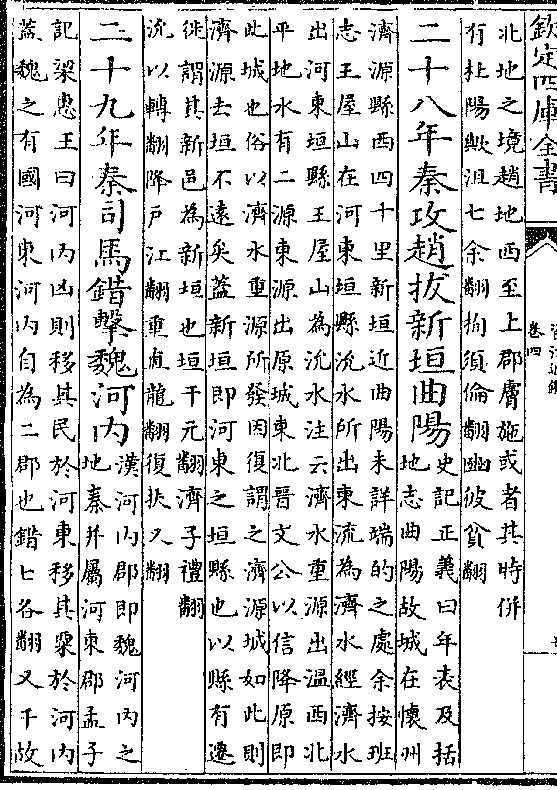 欽定四庫全書
卷四
北地之境趙地西至上郡膚施或者其時併
有杜陽歟沮七余翻栒須倫翻豳彼貧翻
二十八年秦攻趙拔新垣曲陽
史記正義曰年表及括
地志曲陽故城在懷州
濟源縣西四十里新垣近曲陽未詳端的之處余按班
志王屋山在河東垣縣沇水所出東流為濟水經濟水
出河東垣縣王屋山為沇水注云濟水重源出溫西北
平地水有二源東源出原城東北晉文公以信降原即
此城也俗以濟水重源所發因復謂之濟源城如此則
濟源去垣不遠矣蓋新垣即河東之垣縣也以縣有遷
徙謂其新邑為新垣也垣于元翻濟子禮翻
沇以轉翻降戶江翻重直龍翻復扶又翻
二十九年秦司馬錯擊魏河内
漢河内郡即魏河内之
地秦并屬河東郡孟子
記梁惠王曰河内凶則移其民於河東移其粟於河内
蓋魏之有國河東河内自為二郡也錯七各翻又千故